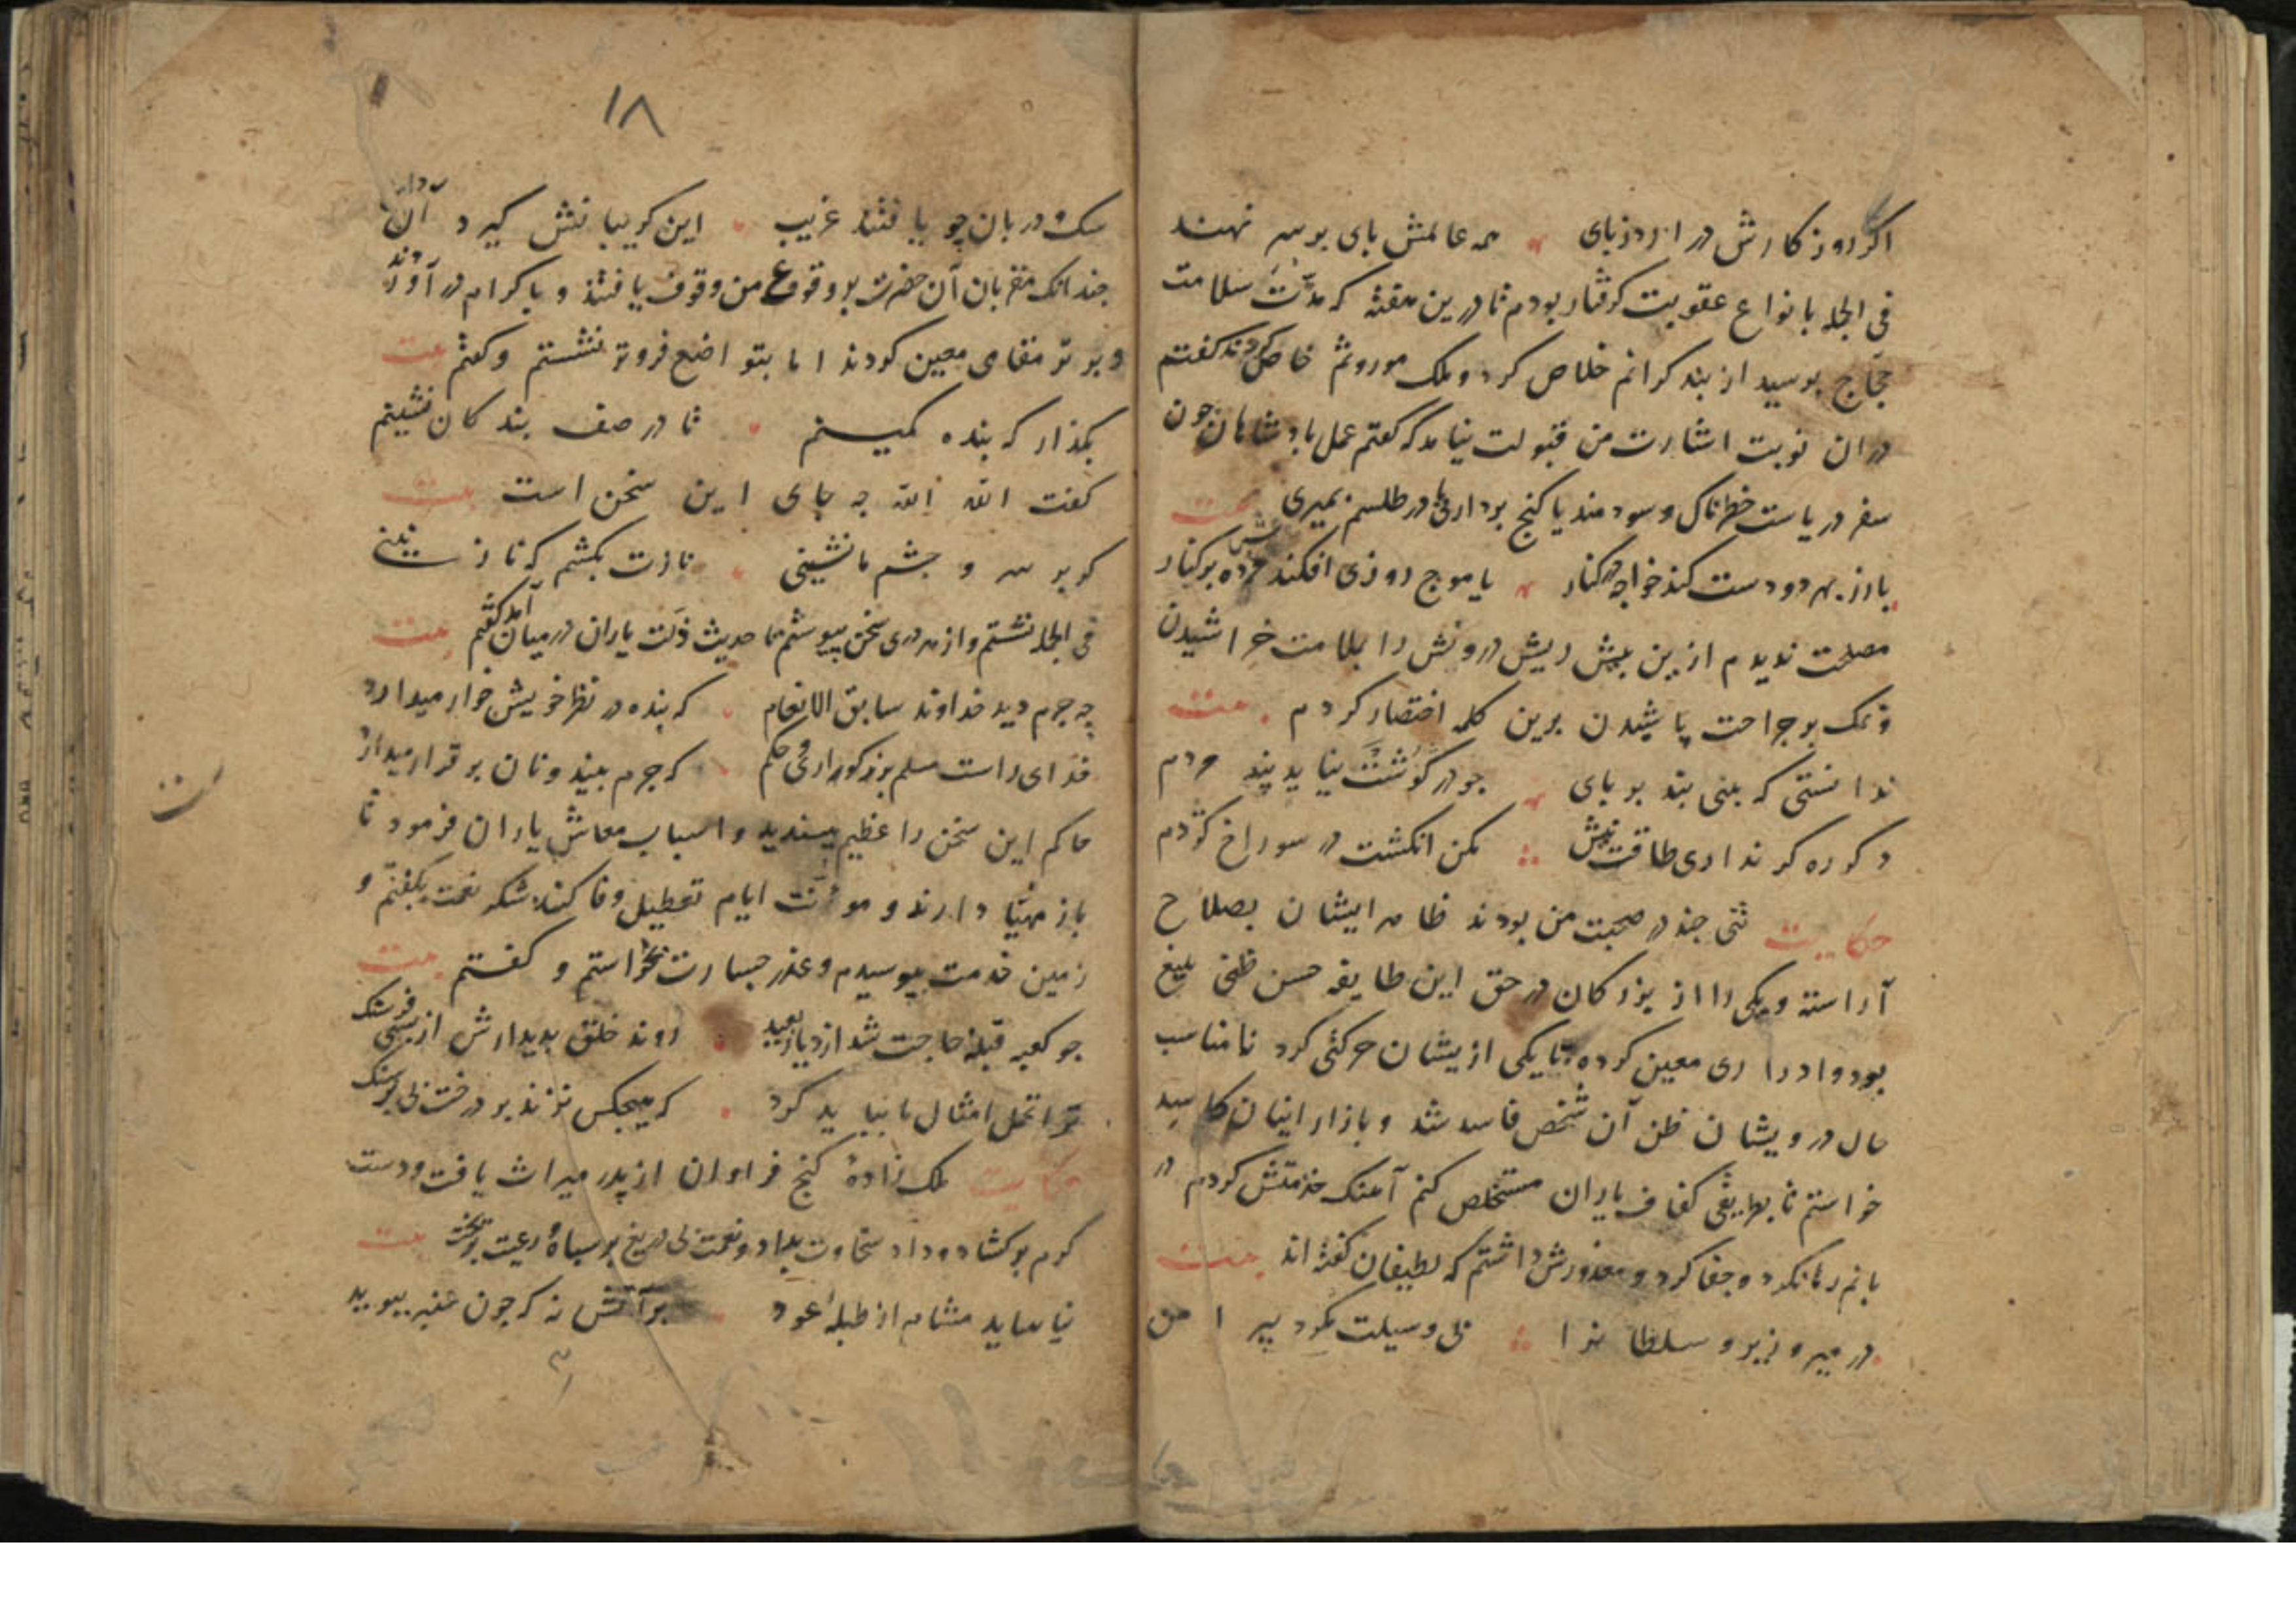 اکر روز کارش در ارد زبای همه عالمش بای بر سر نهند
فی الجمله بانواع عقوبت کرفتار بودم تا درین هفته که مژدت سلامت
حجاج برسید از بند کرانم خلاص کرد و ملک موروثم خاص کردند کفتم
دران نوبت اشارت من قبولت نیامد که کفتم عمل بادشاهان جون
سفر دریاست خطرناک و سودمند یا کنج برداری یا در طلسم بمیری بیت
یا زر بهر دو دست کند خواجه در کنار یا موج روزی افکندش مرده بر کنار
مصلحت ندیدم ازین بیش ریش درونش را بملامت خراشیدن
و نمک بر جراحت پاشیدن برین کلمه اختصار کردم بیت
ندانستی که بینی بند بر بای جو در کوشت نیاید پند مردم
دکر ره کر نداری طاقت نیش مکن انکشت در سوراخ کژدم
حکایت تنی جند در صحبت من بودند ظاهر ایشان بصلاح
آراسته و یکی را از بزرکان در حق این طایفه حسن ظنی بلیغ
بود و ادراری معین کرده تا یکی ازیشان حرکتی کرد نامناسب
حال درویشان ظن آن شخص فاسد شد و بازار اینان کاسد
خواستم تا بطریقی کفاف یاران مستخلص کنم آهنک خدمتش کردم در
بانم رها نکرد و جفا کرد و معذورش داشتم که لطیفان کفته اند بیت
در میر و وزیر و سلطانرا بی وسیلت مکرد پیرامن
۱۸
سک و دربان جو یافتند غریب این کریبانش کیرد آن دامن
جندانک مقربان آن حضرت بر وقوع من وقوف یافتند و باکرام در آوردند
و برتر مقامی معین کردند اما بتواضع فروتر نشستم و کفتم بیت
بکذار که بنده کمینم تا در صف بندکان نشینم
کفت الله الله جه جای این سخن است بیت
کر بر سر و جشم ما نشینی نازت بکشم که نازنینی
فی الجمله نشستم و از هر دری سخن پیوستم تا حدیث ذلت یاران در میان آمد کفتم بیت
چه جرم دید خداوند سابق الانعام که بنده در نظر خویش خوار میدارد
خدای راست مسلم بزرکواری و حکم که جرم بیند و نان برقرار میدارد
حاکم این سخن را عظیم بپسندید و اسباب معاش یاران فرمود تا
باز مهیا دارند و مؤنت ایام تعطیل وفا کنند شکر نعمت بکفتم و
زمین خدمت ببوسیدم و عذر جسارت بخواستم و کفتم بیت
جو کعبه قبلۀ حاجت شد از دیار بعید روند خلق بدیدارش از بسی فرسنک
ترا تحمل امثال ما بباید کرد که هیچکس نزند بر درخت بی بر سنک
حکایت ملک زادۀ کنج فراوان از پدر میراث یافت و دست
کرم برکشاد و داد سخاوت بداد و نعمت بی دریغ بر سپاه و رعیت بریخت بیت
نیاساید مشام از طبلۀ عود بر آتش نه که جون عنبر ببوید